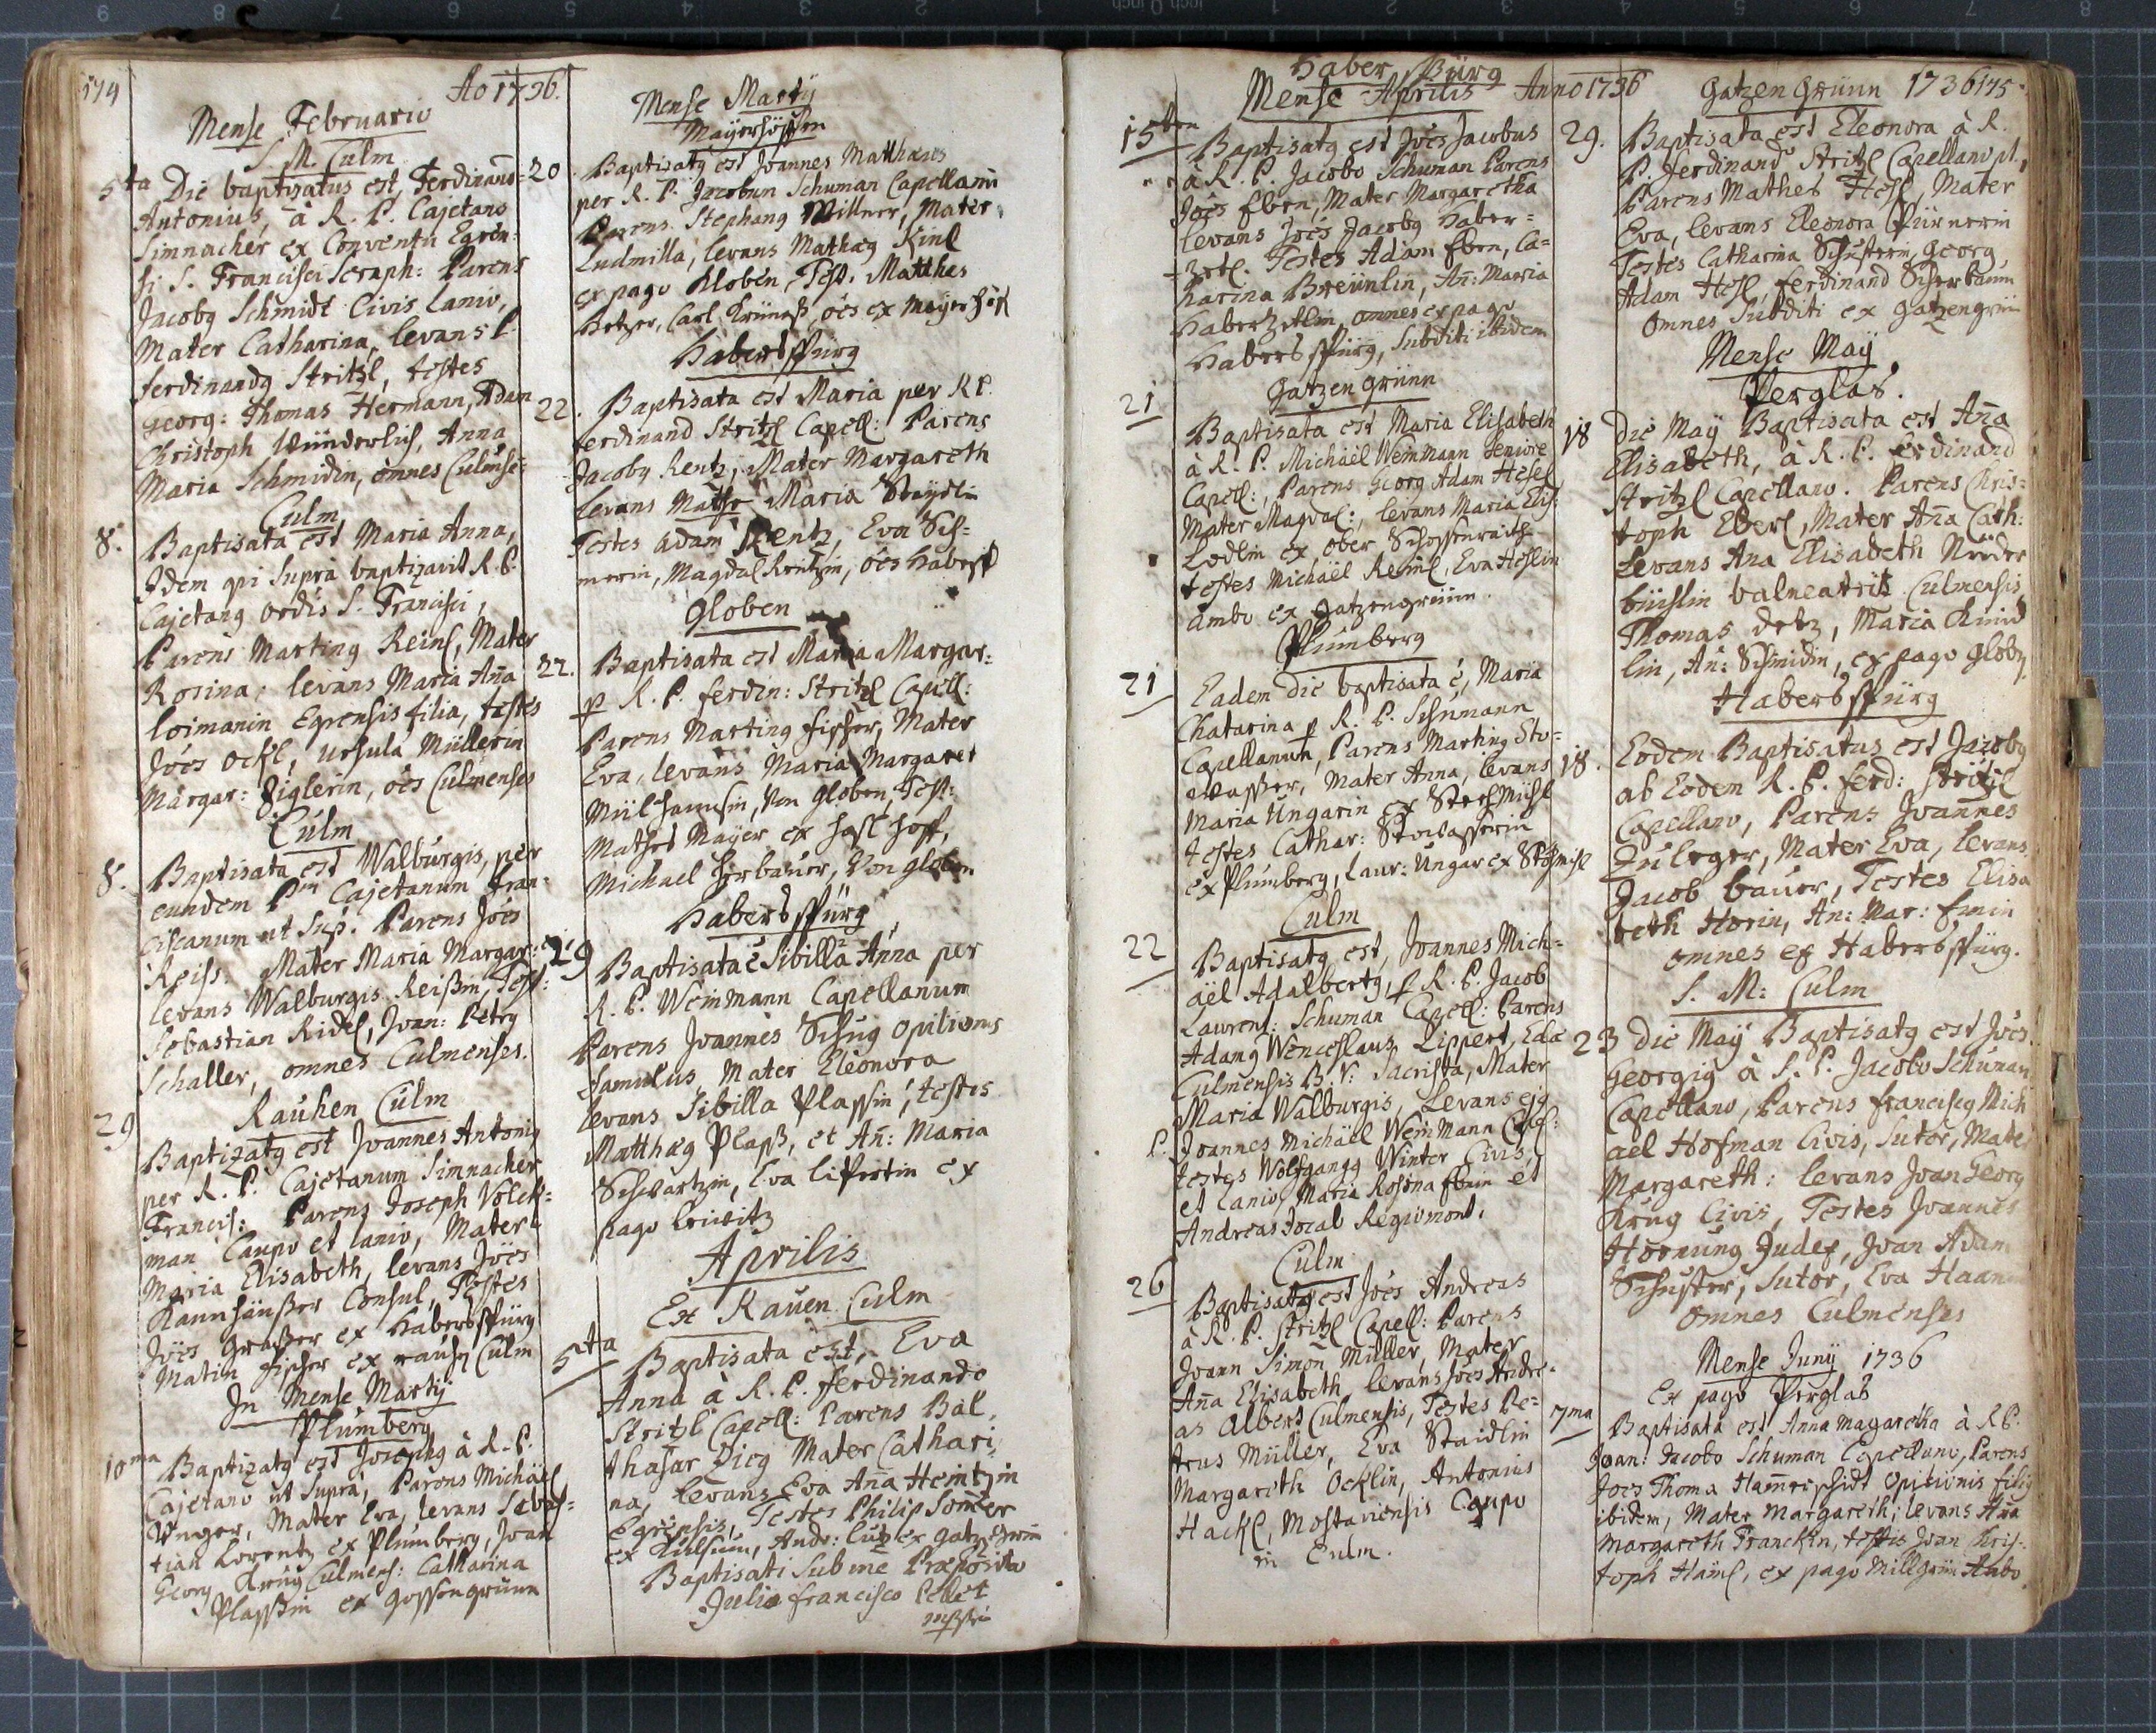 174
Ao 1736.
Mense Februario
S. M. Culm
5ta Die baptizatus est, Ferdinand9
Antonius, à R. P. Cajetano
Simnacher ex Conventu Egren-
si S. Francisci Seraph: Parens
Jacob9 Schmidt Civis Lanio,
Mater Catharina, levans P.
Ferdinand9 Stritzl, testes
Georg: Thomas Hermann, Adam
Christoph Wunderlich, Anna
Maria Schmidin, omnes Culmens:
Culm
8. Baptisata est Maria Anna,
Idem qui supra baptizavit R. P.
Cajetan9 ordis S. Francisci,
Parens Martin9 Reinl, Mater
Rosina; levans Maria Aña
Loimanin Egrensis filia, testes
Jões Öckl, Ursula Müllerin
Margar: Ziglerin, oēs Culmenses
Culm
8. Baptisata est Walburgis, per
eundem Pm Cajetanum Fran-
ciscanum ut sup. Parens Jões
Reiss: Mater Maria Margar:
levans Walburgis Reißin, Test:
Sebastian Ridl, Joan: Petr9
Schaller, omnes Culmenses.
Rauhen Culm
29 Baptizat9 est Joannes Antoni9
per R. P. Cajetanum Simnacher
Francis: Parens Joseph Volck-
man Caupo et Lanio, Mater
Maria Elisabeth, levans Jões
Kannhäußer Consul, Testes
Jões Graßer ex Habersspürg
Matin Fischer ex rauhen Culm
In Mense Martij
Plumberg
10ma Baptizat9 est Joseph9 à R. P.
Cajetano ut supra, Parens Michäel
Unger, Mater Eva, levans Sebas-
tian Lorentz ex Plumberg, Joan
Georg Krug Culmens: Catharina
Plassin ex Gossengrünn
Mense Martij
Mayershöffen
20 Baptizat9 est Joannes Matthæus
per R. P. Jacobum Schuman Capellanū
Parens Stephan9 Millner, Mater
Ludmilla, levans Mathæ9 Kinl
ex pago Kloben, Test: Matthes
Hetzer, Carl Krüneß, oēs ex Mayerhöff
Habersspürg
22. Baptisata est Maria per R P.
Ferdinand Stritzl Capell: Parens
Jacob9 Rentz, Mater Margareth
Levans Maria Staÿdlin
Testes Adam Rentz, Eva Sch-
merin, Magdal Rentzin, oēs Habersp
Globen
22. Baptisata est Maria Margar:
p R. P. Ferdin: Stritzl Capell:
Parens Martin9 Fischer, Mater
Eva, levans Maria Margaret
Mülhansin, Von Globen, Test:
Mathes Mayer ex Haslhoff,
Michael Herbauer, Von Globen
Habersspürg
29 Baptisata ē Sibilla Anna per
R. P. Weinmann Capellanum
Parens Joannes Schug opilionis
famulus, Mater Eleonora
levans Sibilla Plassin, testes
Matthæ9 Plaß, et Añ: Maria
Schwartzin, Eva Lipertin ex
pago Leiwitz
Aprilis
Ex Rauen Culm
5ta Baptisata est, Eva
Anna à R. P. Ferdinando
Stritzl Capell: Parens Bal-
thasar Dieg Mater Cathari-
na, levans Eva Aña Heintzin
Egrensis, Testes Philip Som̄er
ex Kulsum, Andr: Lutz ex Gatzengrün
Baptisati sub me Præposito
Julio Francisco Pellet
Haber Bürg
Mense Aprilis Anno 1736
15ten Baptisat9 est Jões Jacobus
à R. P. Jacobo Schuman Parens
Jões Eben, Mater Margaretha
levans Jões Jacob9 Haber-
zetl. Testes Adam Eben, Ca-
tharina Breünlin, Añ: Maria
Haberzetlin omnes ex pago
Habersspürg, Subditi ibidem
Gatzengrünn
21 Baptisata est Maria Elisabeth
à R. P. Michäel Weinmann Seniore
Capell:, Parens Georg Adam Hesl
Mater Magdal:, levans Maria Elis:
Lödlin ex ober Schossenraith
testes Michäel Reinl, Eva Heslin
ambo ex Gatzengrünn.
Plumberg
21 Eadem die baptisata ē, Maria
Chatarina p R. P. Schumann
Capellanum, Parens Martin9 Sto-
waßer, Mater Anna, levans
Maria Ungarin ex Stechmühl
testes Cathar: Stowasserin
ex Plumberg, Laur: Ungar ex Stöhmihl
Culm
22 Baptisat9 est, Joannes Mich-
äel Adalbert9, p R. P. Jacob
Laurent: Schuman Capell: Parens
Adam9 Wenceslaus Lippert, Eclæ
Culmensis B. V: Sacrista, Mater
Maria Walburgis, Levans ej9
P. Joannes Michäel Weinmann Capl:
testes Wolfgang9 Winter Civis
et Lanio, Maria Rosina Ebnin et
Andreas Jocal Regiomont.
Culm
26 Baptisat9 est Jões Andreas
à R. P. Stritzl Capell: Parens
Joann Simon Müller, Mater
Aña Elisabeth levans Jões Andre-
as Albert Culmensis, Testes Pe-
trus Müller, Eva Staidlin
Margareth Öcklin, Antonius
Hackl, Mostaviensis Caupo
in Culm.
Gatzengrünn 1736 175.
29. Baptisata est Eleonora à R.
P. Ferdinand Stritzl Capellano pl.,
Parens Mathes Hesl, Mater
Eva, levans Eleonora Pürnerin
Testes Catharina Schusterin, Georg
Adam Hesl, Ferdinand Scherbaum
Omnes Subditi ex Gatzengrün
Mense May
Perglas.
18 Die May Baptisata est Aña
Elisabeth, à R. P. Ferdinand
Stritzl Capellano. Parens Chris-
toph Eberl, Mater Aña Cath:
Levans Ana Elisabeth Nieder
büchlin balneatrix Culmensis,
Thomas Detz, Maria Künd
lin, An: Schmidin, ex pago Globn
Habersspürg
18. Eodem Baptisatus est Jacob9
ab Eodem R. P. Ferd: Stritzl
Capellano, Parens Joannes
Zuleger, Mater Eva, levans
Jacob bauer, Testes Elisa
beth Horin, An: Mar: Ernin
omnes ex Habersspürg.
S. M: Culm
23 Die May Baptisat9 est Jões
Georgi9 à R. P. Jacobo Schuman
Capellano, Parens Francisc9 Mich
äel Hofman Civis, Sutor, Mate
Margareth: levans Joan Georg
Krug Civis, Testes Joannes
Hornung Judex, Joan Adam
Schuster, Sutor, Eva Haan
omnes Culmenses
Mense Junÿ 1736
Ex pago Perglas
7ma Baptisata est Anna Magaretha à R P.
Joan: Jacobo Schuman Capellano, Parens
Joes Thoma Ham̄erschidt Opilionis fili9
ibidem, Mater Margareth; levans Aña
Margareth Franckin, testis Joan Chris-
toph Haiml, ex pago Millgrün Ambo